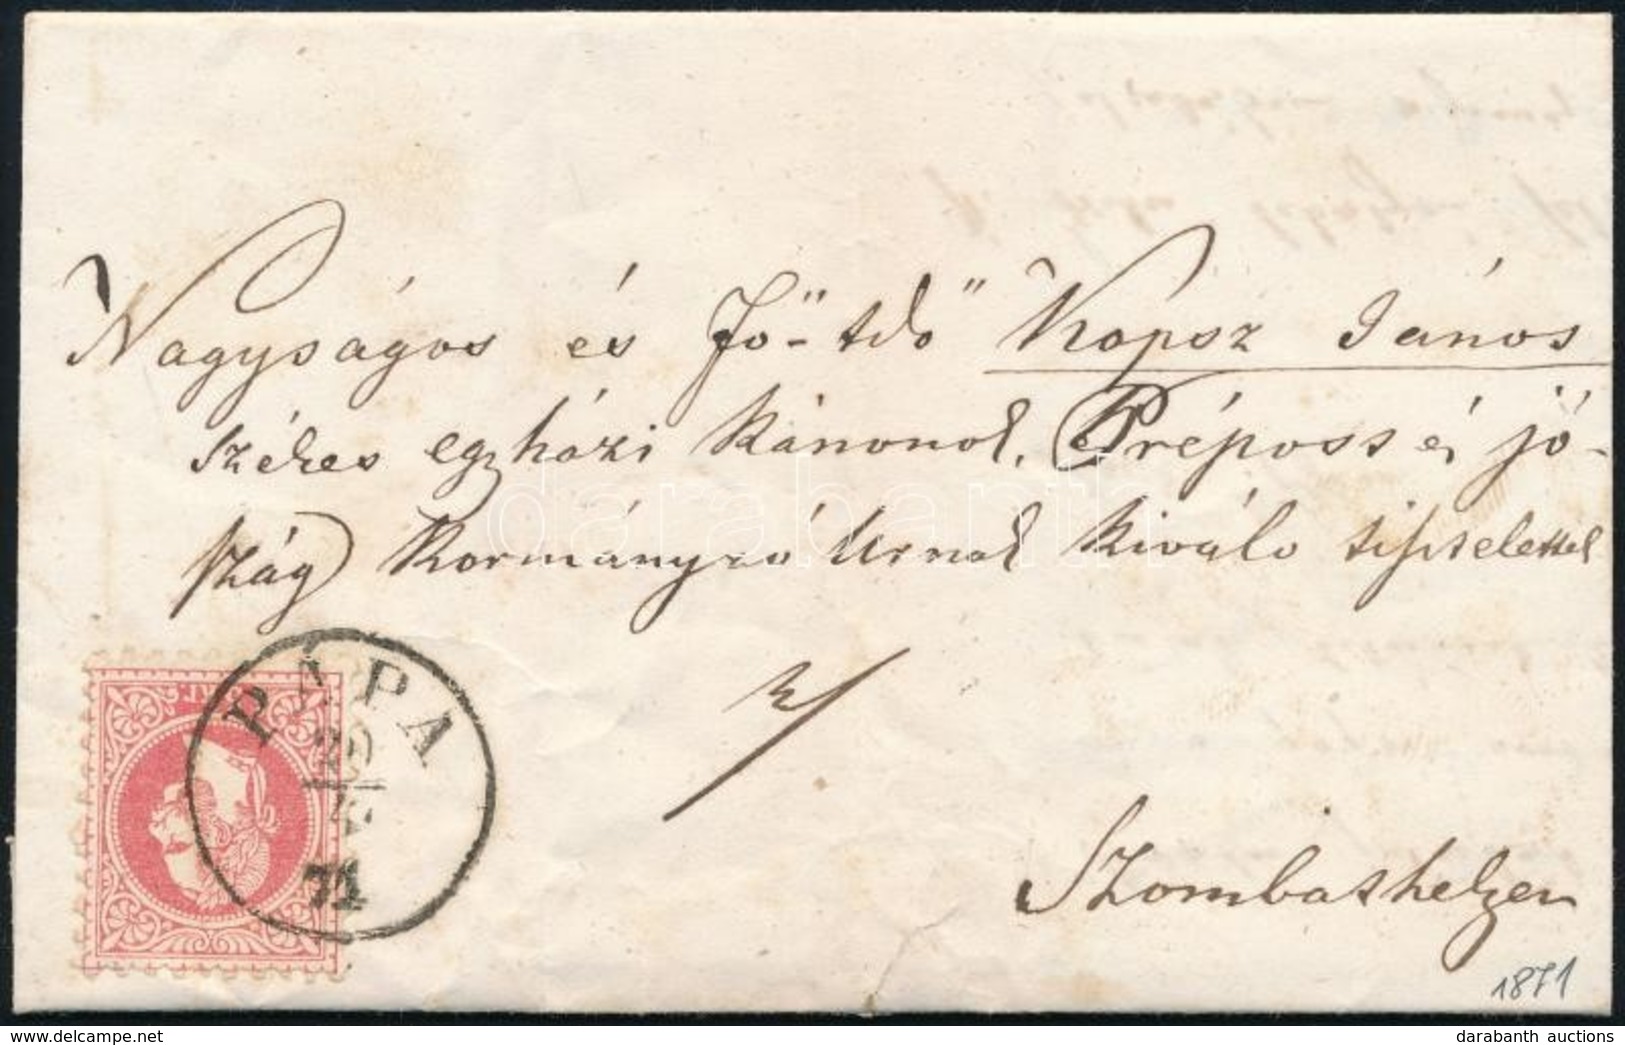 Nagyságos és Fő-tdő Kopsz János
székes egyházi Kánonok, Préposs és jó-
szág Kormányzó Urnak kiváló tisztelettel
PÁPA
71
Szombathelyen
1871
darabanth
darabanth auctions